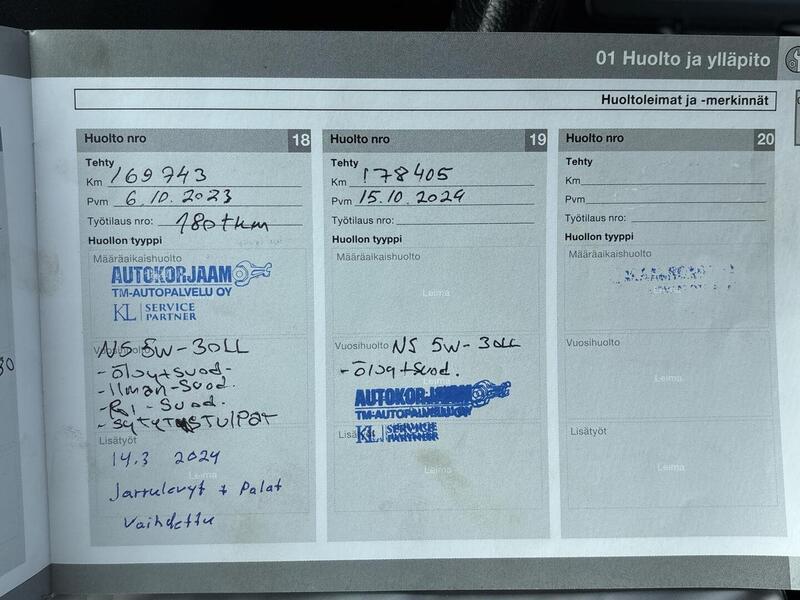 01 Huolto ja ylläpito
Huoltoleimat ja -merkinnät
Huolto nro 18
Tehty
Km 169743
Pvm 6.10.2023
Työtilaus nro: 180tkm
Huollon tyyppi
Määräaikaishuolto
AUTOKORJAAMO
TM-AUTOPALVELU OY
KL SERVICE
PARTNER
Vuosihuolto
NS 5W-30LL
-Öljy+suod-
-Ilman-Suod.
-Suod.
-SYTYTYSTULPAT
Lisätyöt
14.3 2024
Leima
Jarrulevyt + Palat
Vaihdettu
Huolto nro 19
Tehty
Km 178405
Pvm 15.10.2024
Työtilaus nro:
Huollon tyyppi
Määräaikaishuolto
Leima
Vuosihuolto NS 5W-30LL
-Öljy+suod.
AUTOKORJAAMO
TM-AUTOPALVELU OY
Lisätyöt
KL SERVICE
PARTNER
Leima
Huolto nro 20
Tehty
Km
Pvm
Työtilaus nro:
Huollon tyyppi
Määräaikaishuolto
Leima
Vuosihuolto
Leima
Lisätyöt
Leima
30